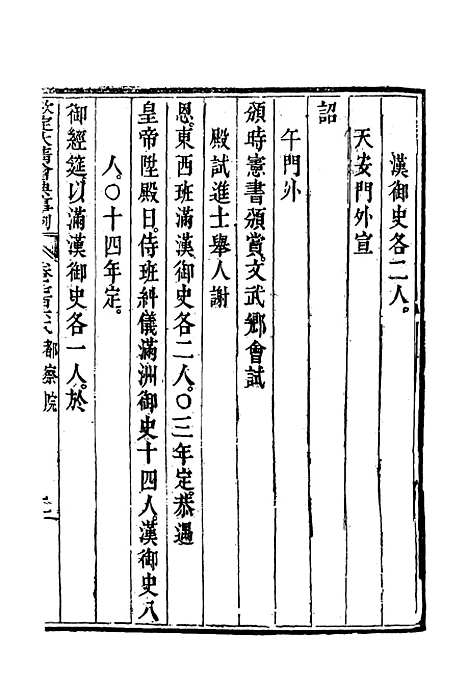 漢御史各二人。
天安門外宣
詔
午門外
頒時憲書頒賞。文武鄉會試
殿試進士舉人謝
恩。東西班滿漢御史各二人。〇三年定。恭遇
皇帝陞殿日。侍班糾儀滿洲御史十四人。漢御史八
人。〇十四年定。
御經筵。以滿漢御史各一人。於
欽定大清會典事例 都察院